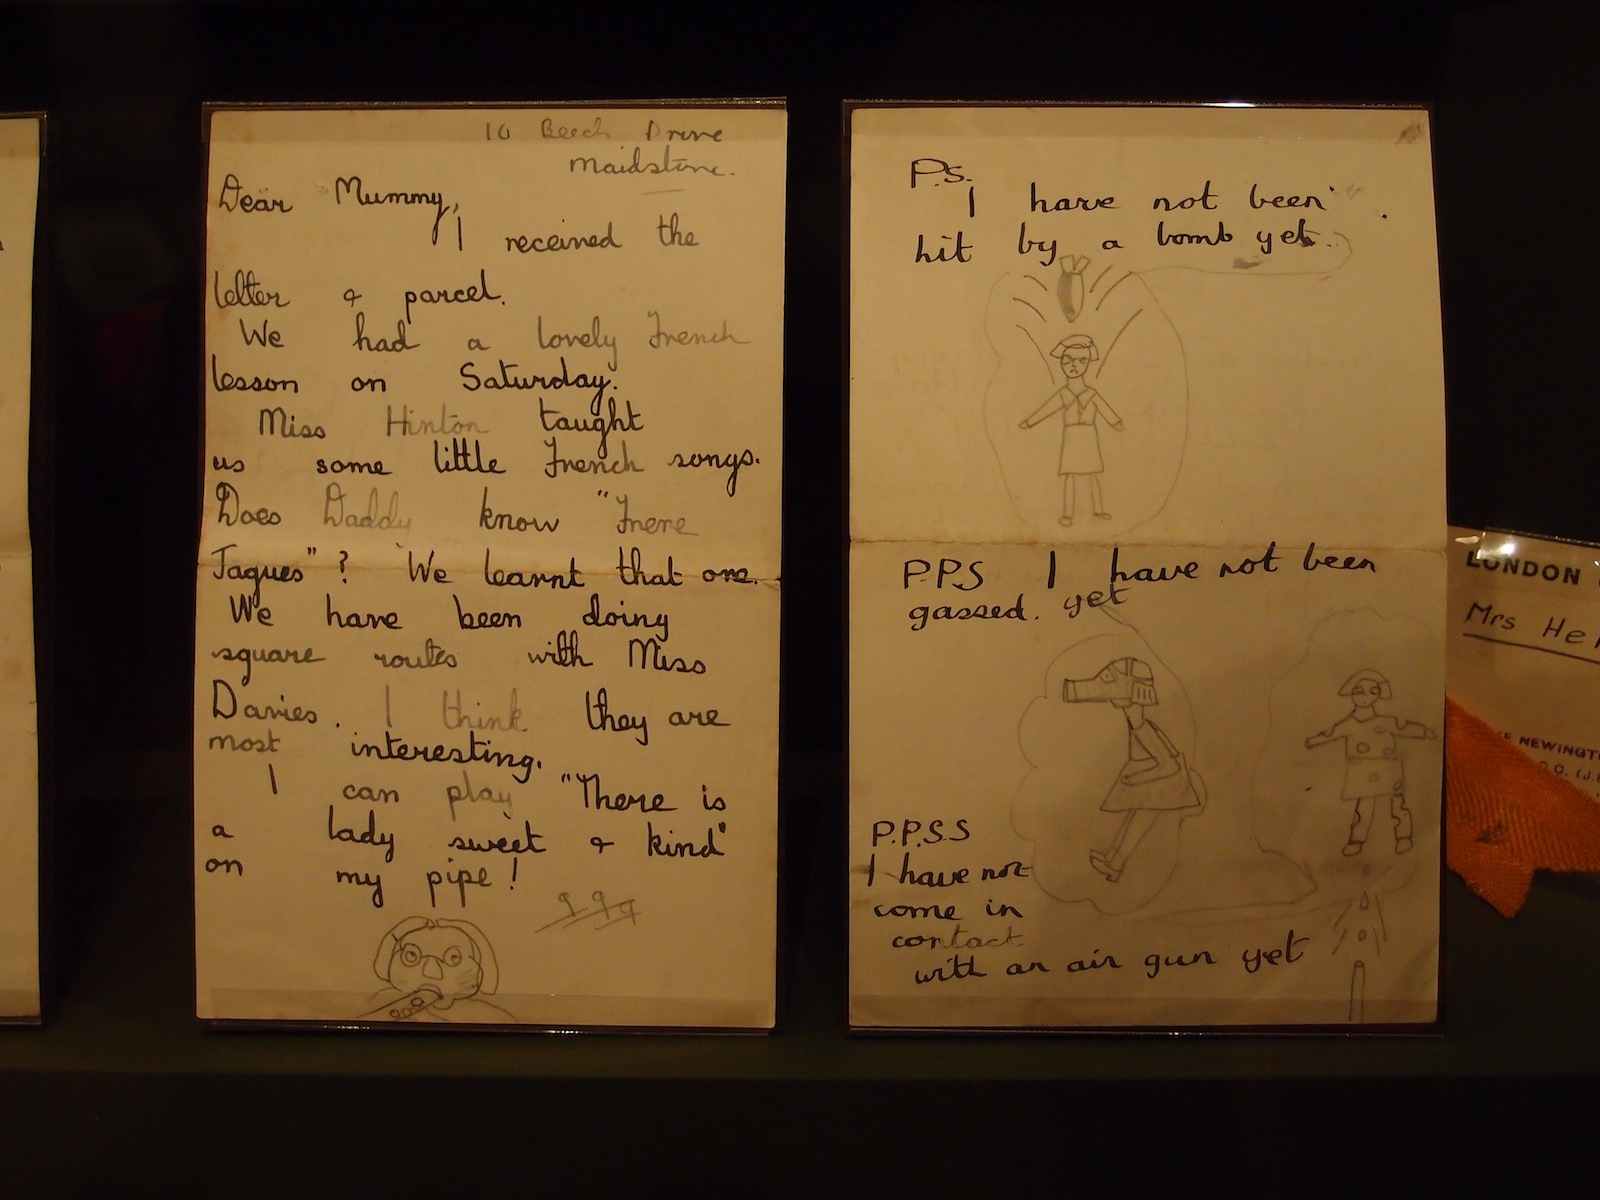 10 Beech Drive
Maidstone.
Dear Mummy,
I received the
letter & parcel.
We had a lovely French
lesson on Saturday.
Miss Hinton taught
us some little French songs.
Does Daddy know "Frere
Jaques"? We learnt that one.
We have been doing
square routes with Miss
Davies. I think they are
most interesting.
I can play "There is
a lady sweet & kind"
on my pipe!
P.S.
I have not been
hit by a bomb yet.
P.P.S I have not been
gassed. yet
P.P.S.S
I have not
come in
contact
with an air gun yet
LONDON
Mrs
NEWINGT